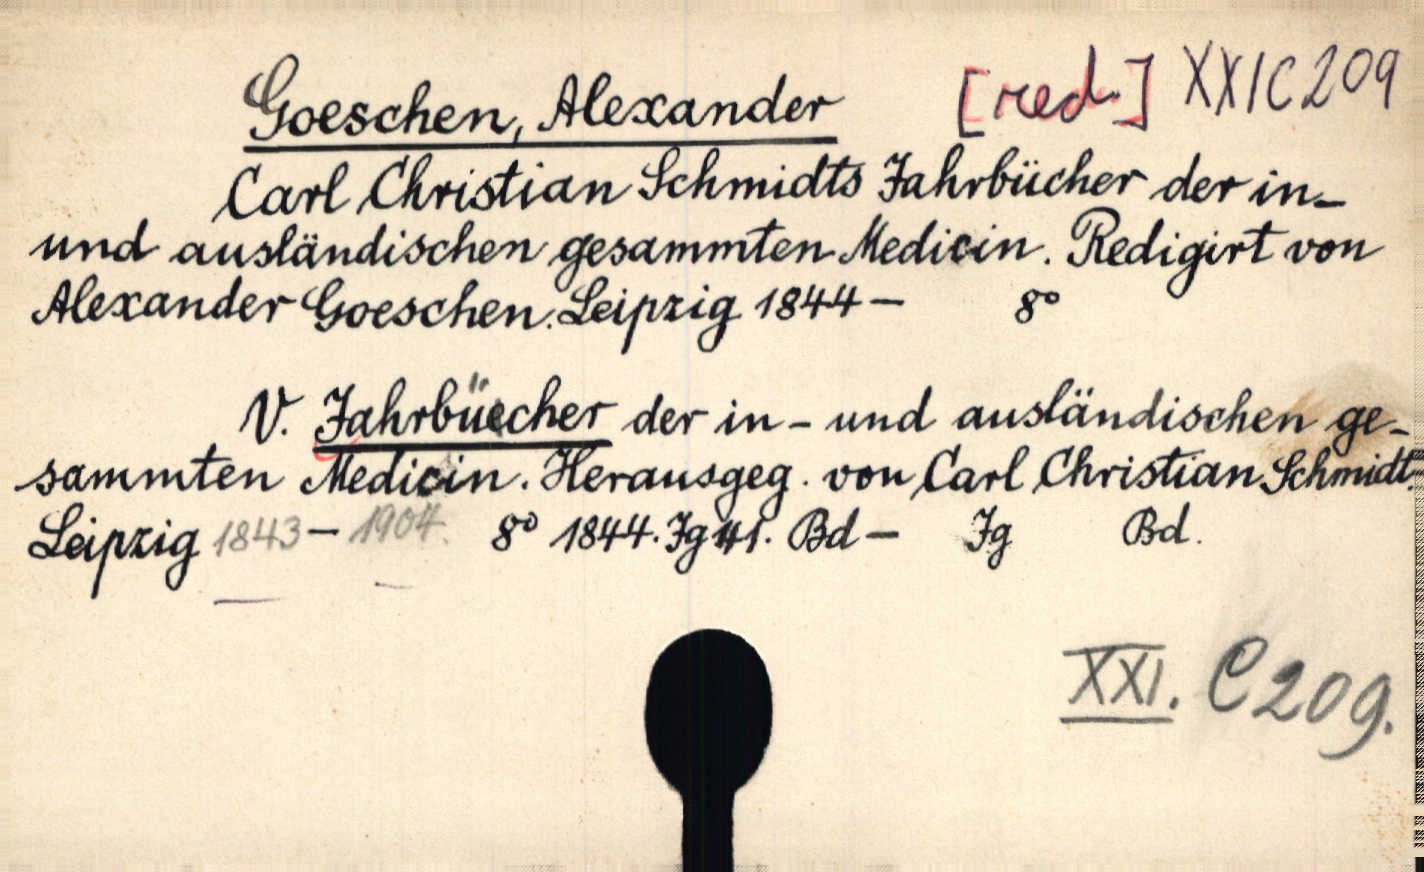 Goeschen, Alexander [red.] XXI C 209
Carl Christian Schmidts Jahrbücher der in-
und ausländischen gesammten Medicin. Redigirt von
Alexander Goeschen. Leipzig 1844 — 8°
V. Jahrbüecher der in- und ausländischen ge-
sammten Medicin. Herausgeg. von Carl Christian Schmidt.
Leipzig 1843 — 1904. 8° 1844. Jg 41. Bd — Jg Bd.
XXI. C 209.